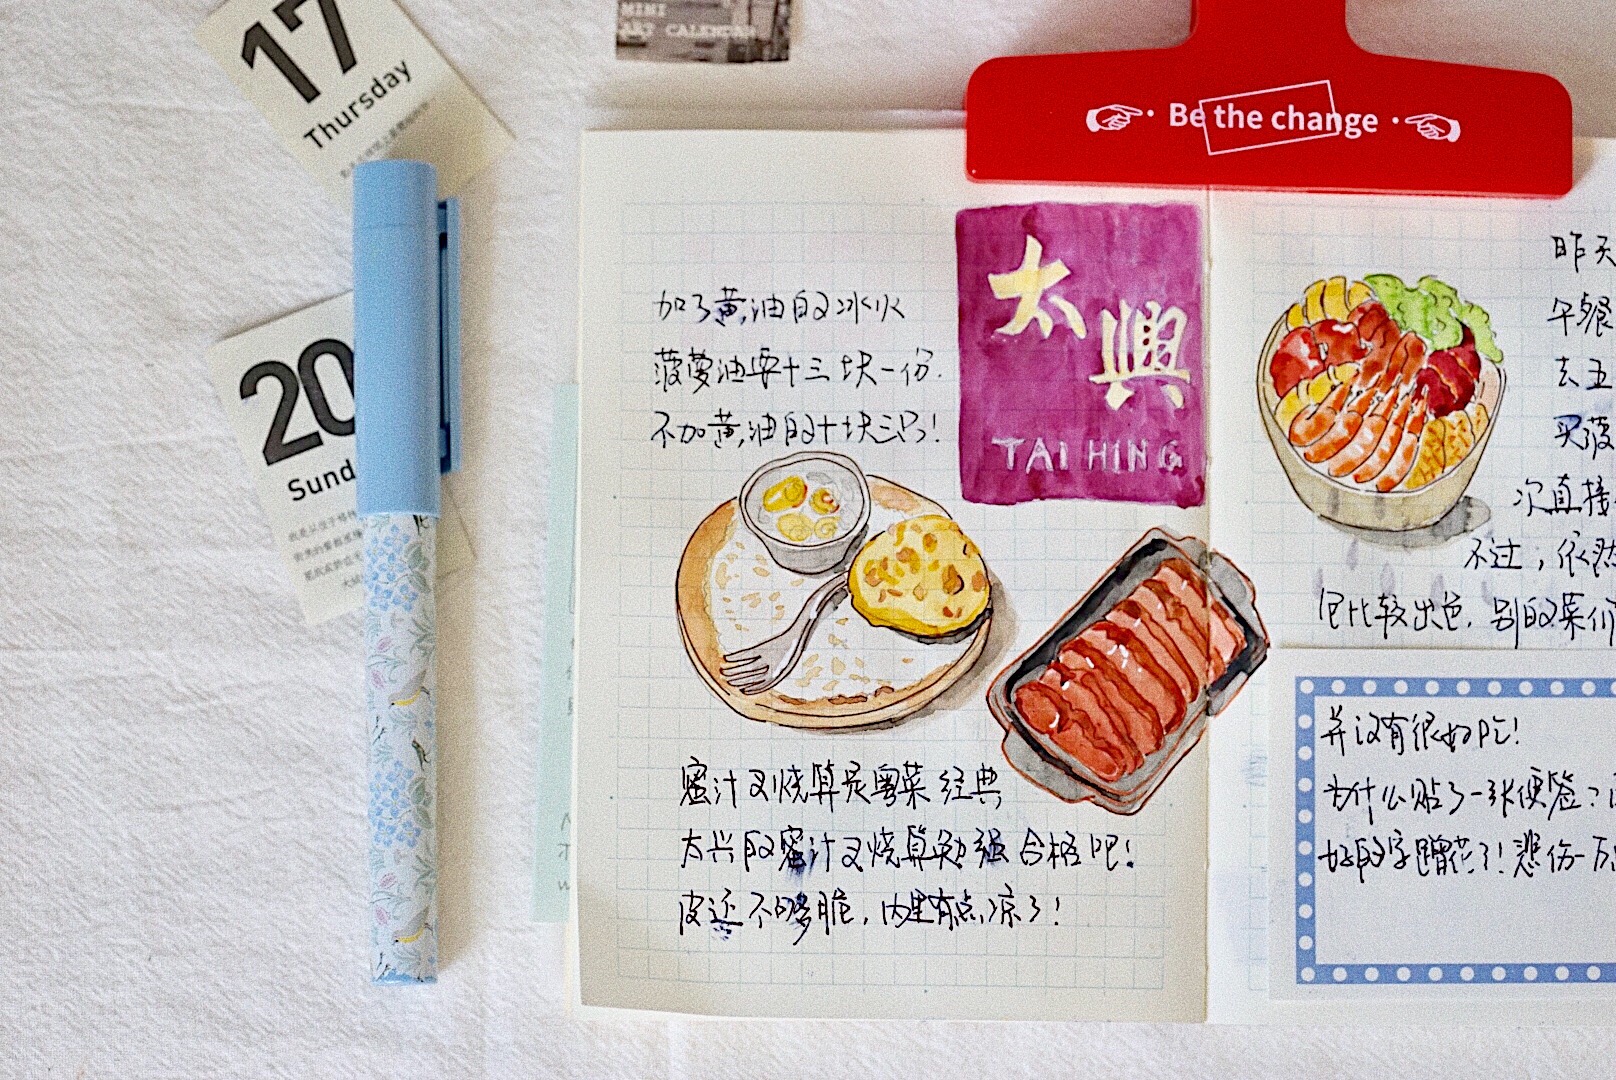 17
Thursday
20
Sund
MINI
ART CALENDAR
Be the change
加了黄油的冰火
菠萝油要十三块一份.
不加黄油的十块三只!
太興
TAI HING
蜜汁叉烧算是粤菜经典
太兴的蜜汁叉烧算勉强合格吧!
皮还不够脆,内里有点凉了!
昨天
午餐
去五
买菠
次直接
不过,依然
但比较出色.别的菜们
并没有很好吃!
为什么贴了一张便签?
好的字蹭花了!悲伤一万